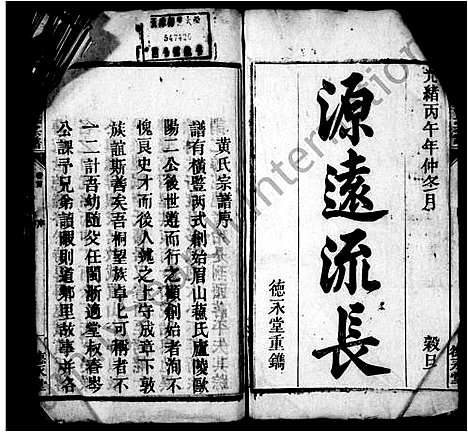 光緒丙午年仲冬月
穀旦
源遠流長
德永堂重鐫
黃氏宗譜序
譜有橫豎兩式創始眉山蘇氏廬陵歐
陽二公後世遵而行之顧創始者洵不
愧良史才而後人執之上守成章下敦
族誼斯善矣吾桐望族卓卜可稱者不
一二計吾幼隨父任閩浙適堂叔春岑
公課予兄弟讀暇則道鄉里故事與名
547420
International